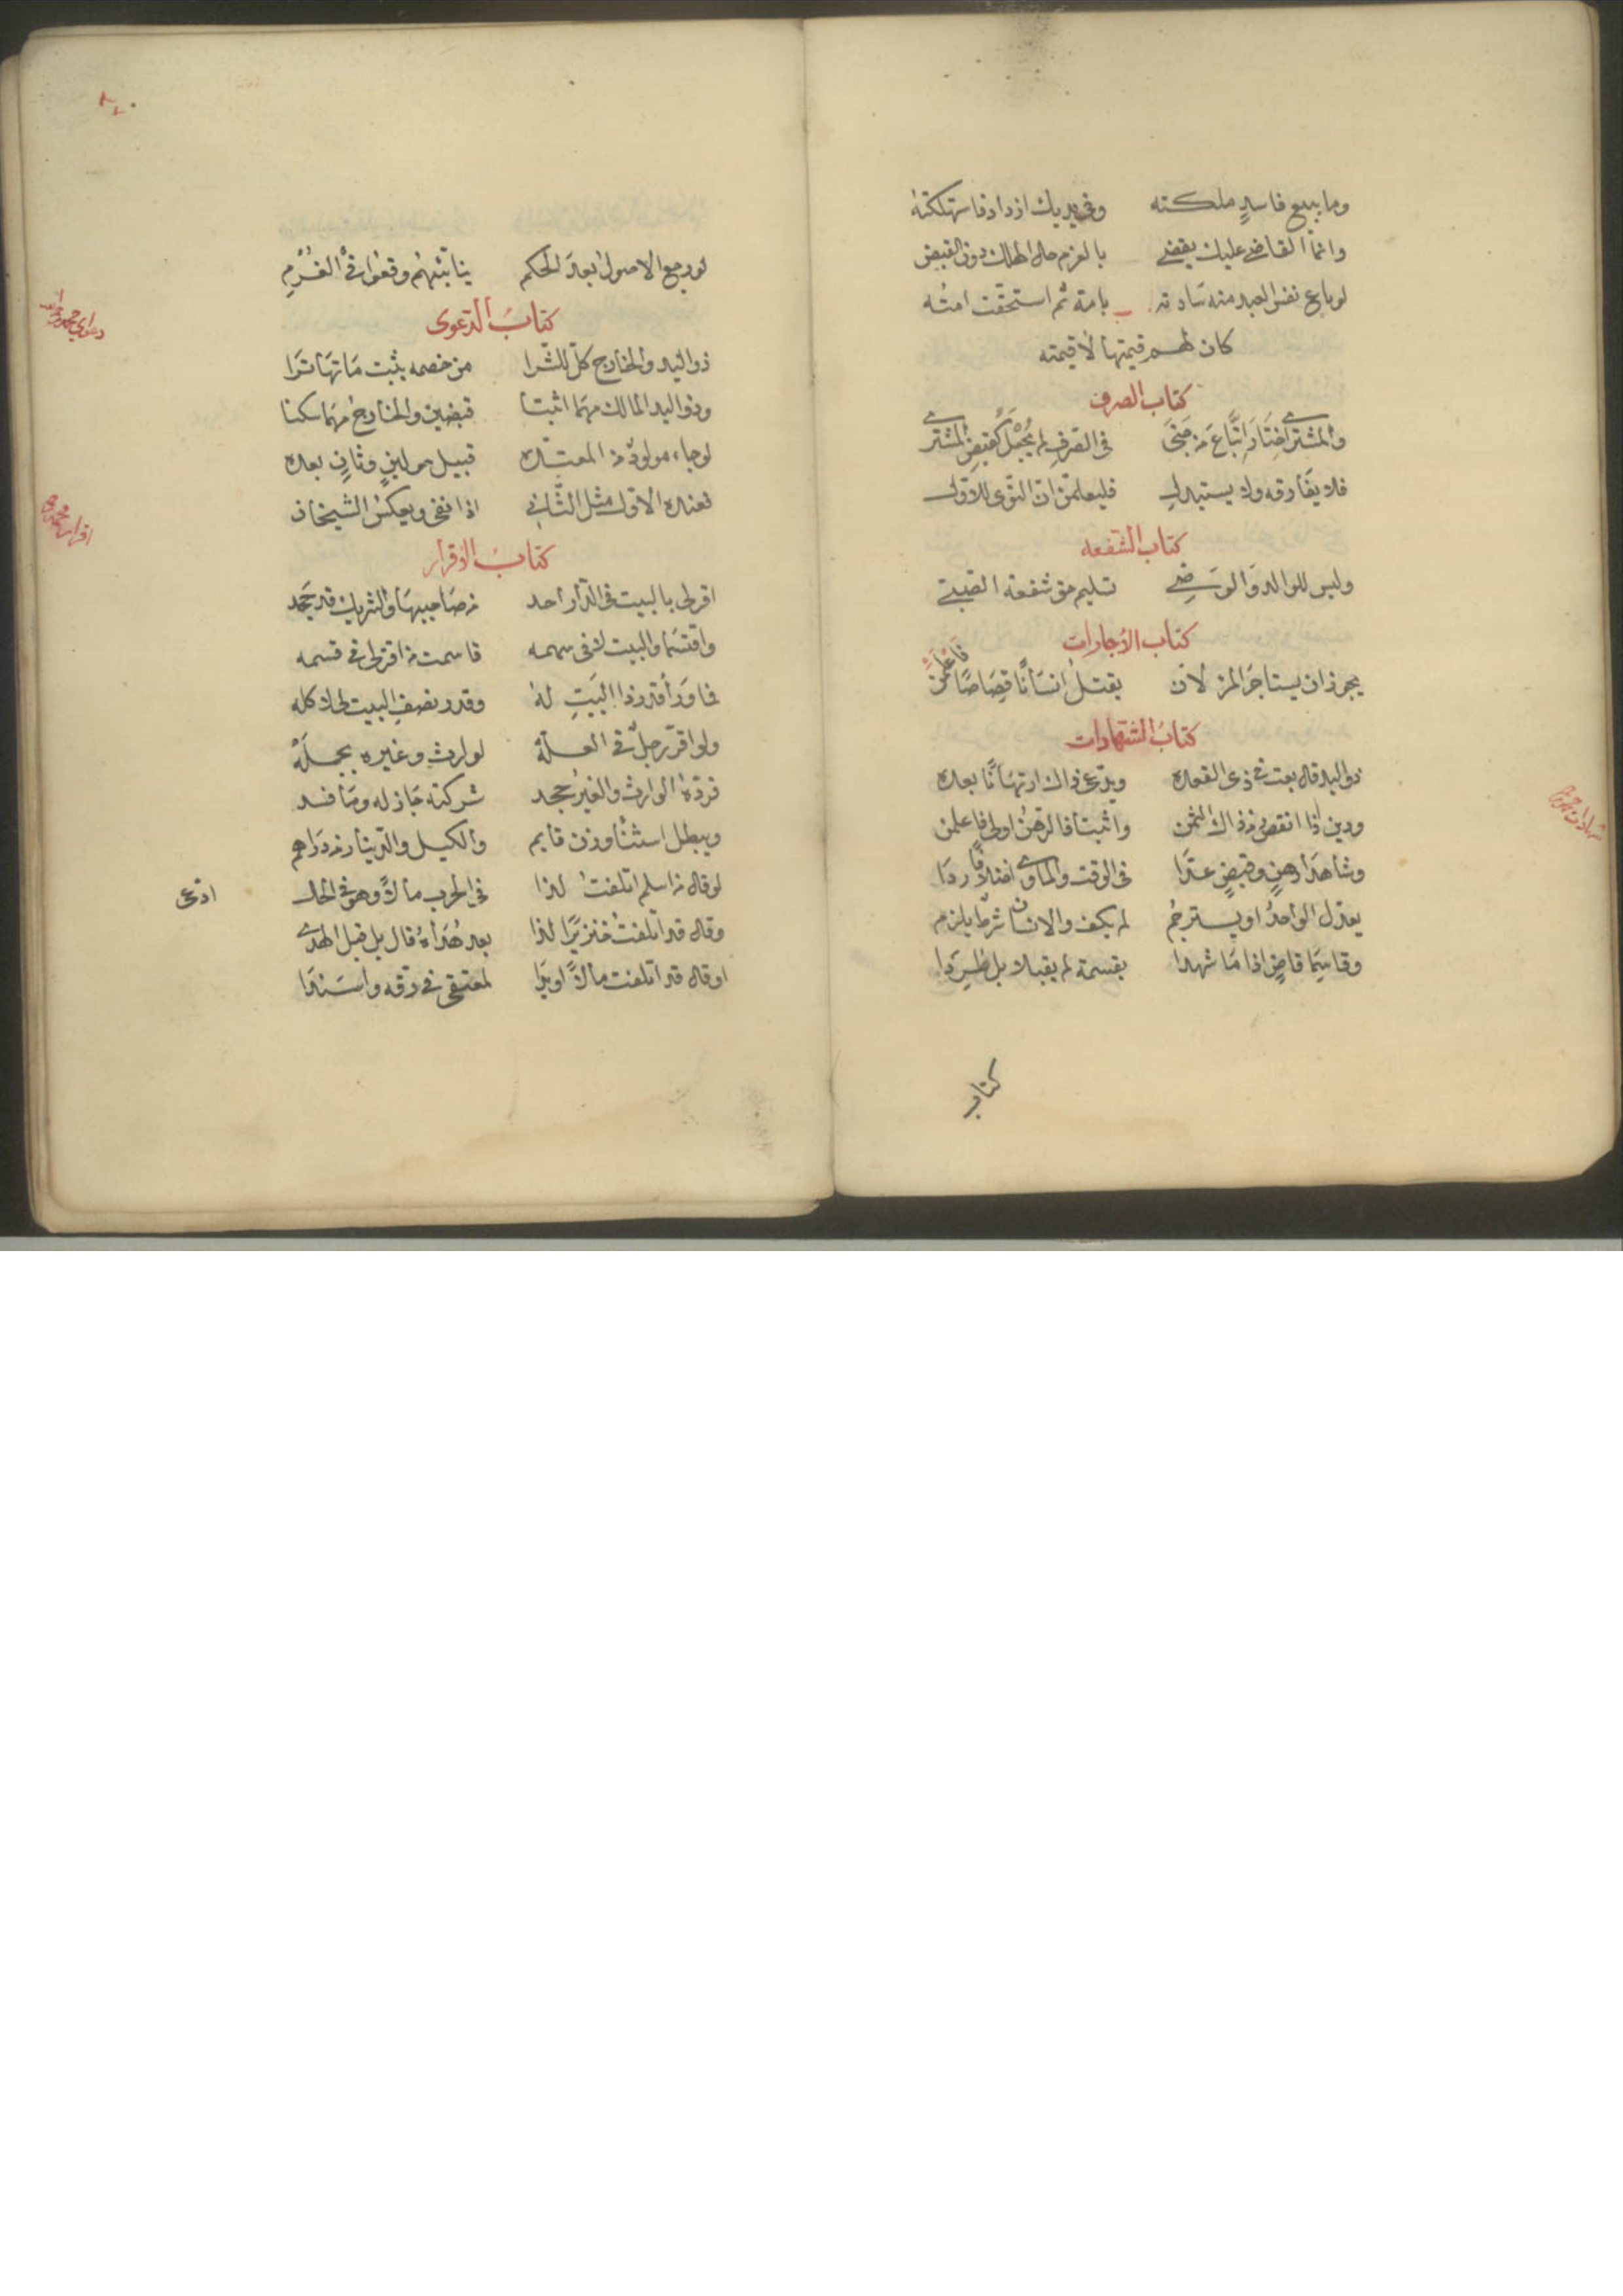 وما ببيع فاسد ملكته وفي يديك ازداد فاستهلكته
وانما القاضي عليك يقضي بالغرم حال الهلك دون القبض
لو باع نفس العبد منه سادته بامة ثم استحقت امته
كان لهم قيمتها لا قيمته
كتاب الصرف
والمشتري اختار اتباع من جنى في الصرف لم يجعل كقبض المشتري
فلا يفارقه ولا يستبدل فليعلمن ان التوى للاول
كتاب الشفعه
وليس للوالد والوصي تسليم حق شفعة الصبي
كتاب الاجارات
يجوز ان يستاجر المرء لان يقتل انسانا قصاصا فاعلمن
كتاب الشهادات
ذو اليد قال بعت في ذي القعده ويدعي ذاك ارتهانا بعده
ودين ذا انقص من ذاك الثمن واثبتا فالرهن اولى فاعلمن
وشاهدا رهن وقبض عدا في الوقت والماوى اختلافا ردا
يعدل الواحد او يسترجم لم يكف والاثنان شرط يلزم
وقاسما قاض اذا ما شهدا بقسمة لم يقبلا بل طردا
كتاب
لو رجع الاصول بعد الحكم ينا بتهم وقعوا في الغرم
كتاب الدعوى
ذو اليد والخارج كل للشرا من خصمه يثبت ما تهاترا
وذو اليد المالك مهما اثبتا قبضين والخارج مهما سكتا
لو جاء مولود من المعتده قبيل حولين وثان بعده
فعنده الاول مثل الثاني اذا نفى ويعكس الشيخان
كتاب الاقرار
اقر لي بالبيت في الدار احد من صاحبيها والشريك قد جحد
واقتسما والبيت لا في سهمه قاسمت من اقر لي في قسمه
فما ورا قدر ذا البيت له وقدر نصف البيت لي لا كله
ولو اقر رجل في العلة لوارث وغيره بجملة
فرده الوارث والغير جحد شركته جاز له وما فسد
ويبطل استثنا وزن قايم والكيل والدينار من دراهم
لو قال من اسلم اتلفت لذا في الحرب مالا وهو في الحال
وقال قد اتلفت خنزيرا لذا بعد هداه قال بل قبل الهدي
او قال قد اتلفت مالا او يدا لمعتقي في رقه واسندا
ادعى